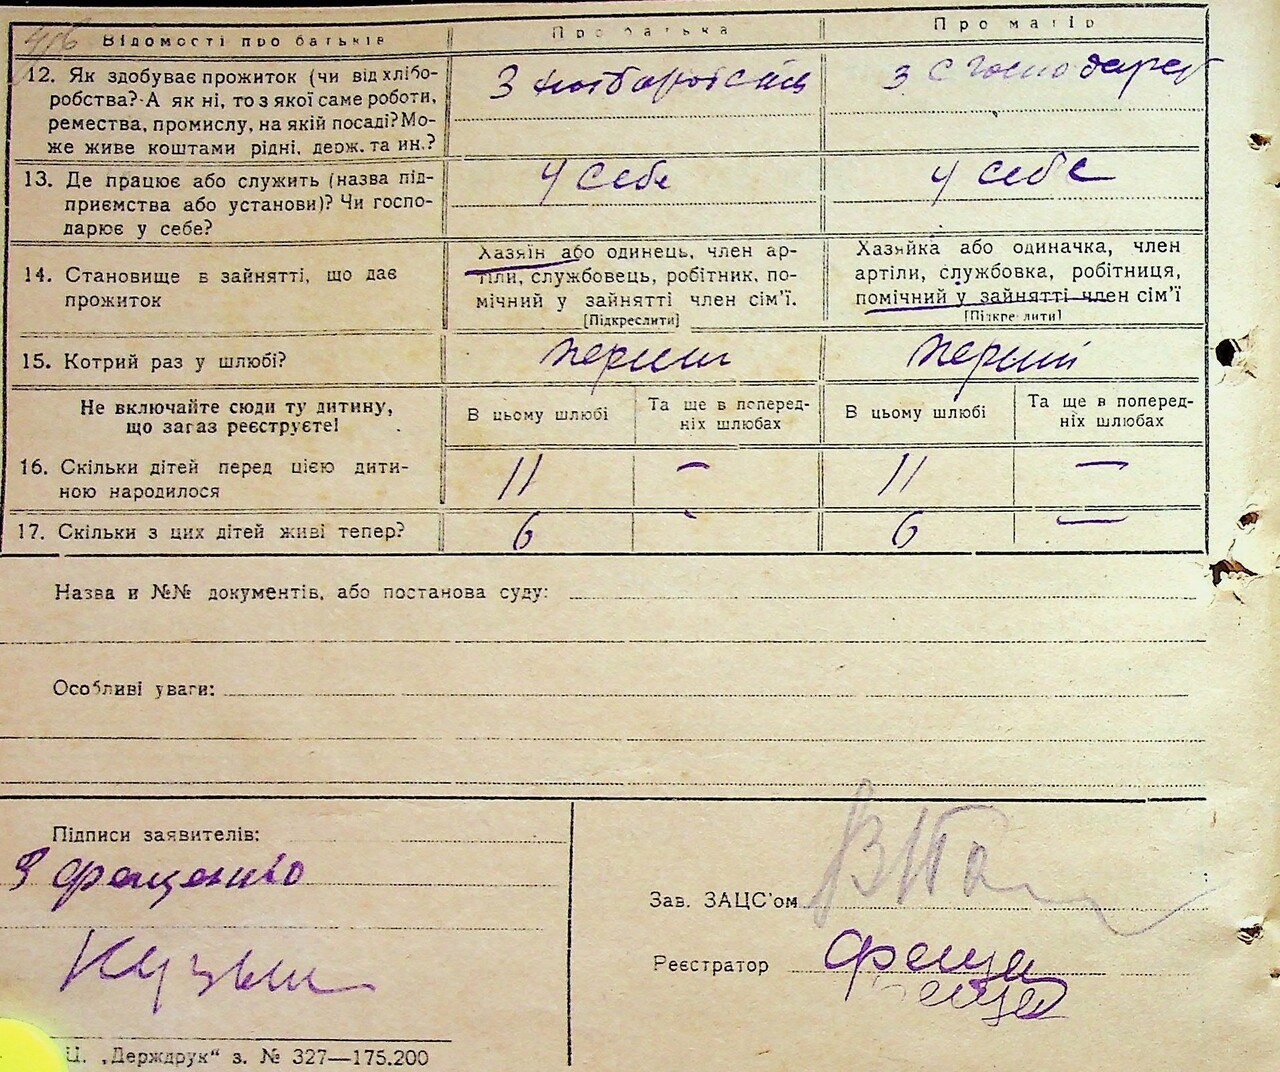 Відомості про батьків
Про батька
Про матір
12. Як здобуває прожиток (чи від хлібо-
робства? А як ні, то з якої саме роботи,
ремества, промислу, на якій посаді? Мо-
же живе коштами рідні, держ. та ин.?
З хліборобства
З с господар
13. Де працює або служить (назва під-
приємства або установи)? Чи госпо-
дарює у себе?
У себе
У себе
14. Становище в зайнятті, що дає
прожиток
Хазяїн або одинець, член ар-
тіли, службовець, робітник, по-
мічний у зайнятті член сім'ї.
[Підкреслити]
Хазяйка або одиначка, член
артіли, службовка, робітниця,
помічний у зайнятті член сім'ї
[Підкреслити]
15. Котрий раз у шлюбі?
перший
перший
Не включайте сюди ту дитину,
що загаз реєструєте!
В цьому шлюбі
Та ще в поперед-
ніх шлюбах
В цьому шлюбі
Та ще в поперед-
ніх шлюбах
16. Скільки дітей перед цією дити-
ною народилося
11 – 11 –
17. Скільки з цих дітей живі тепер?
6 - 6 –
Назва и №№ документів, або постанова суду:
Особливі уваги:
Підписи заявителів:
Фещенко
Зав. ЗАЦС'ом
Кузьм
Реєстратор Феща
Ц. „Держдрук“ з. № 327—175.200